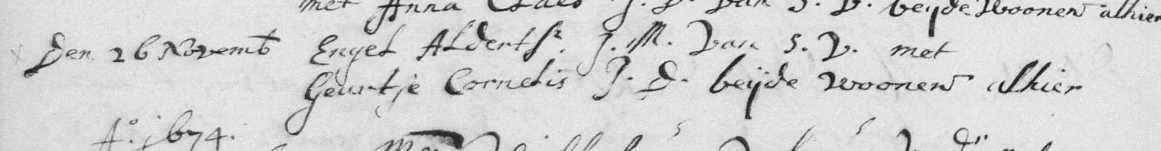 met Anna Claes J. D. van S. V. beijde Woonen alhier
Den 26 Novemb Engel Aldertsz. J. M. van S. V. met
Geurtje Cornelis J. D. beijde woonen alhier
Ao. 1674.